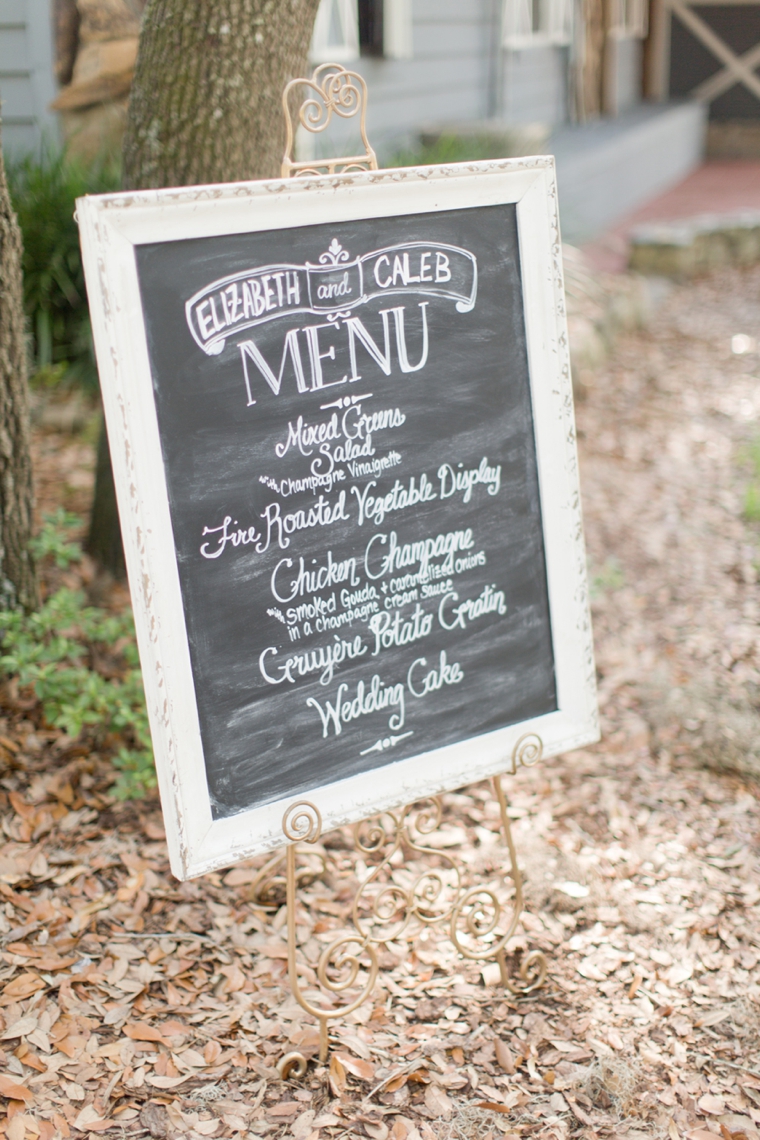 ELIZABETH and CALEB
MENU
Mixed Greens
Salad
with Champagne Vinaigrette
Fire Roasted Vegetable Display
Chicken Champagne
with Smoked Gouda + Caramelized Onions
in a champagne cream sauce
Gruyère Potato Gratin
Wedding Cake